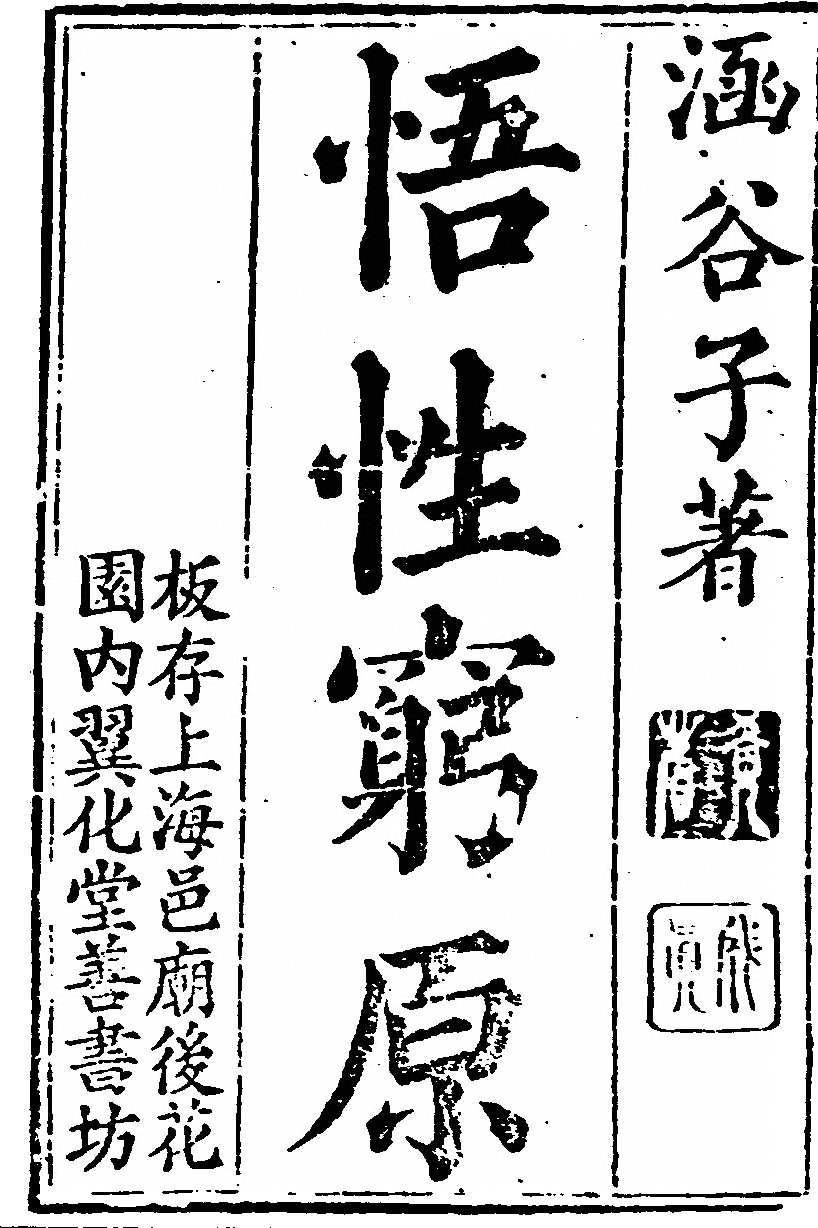 涵谷子著
悟性窮原
板存上海邑廟後花
園内翼化堂善書坊